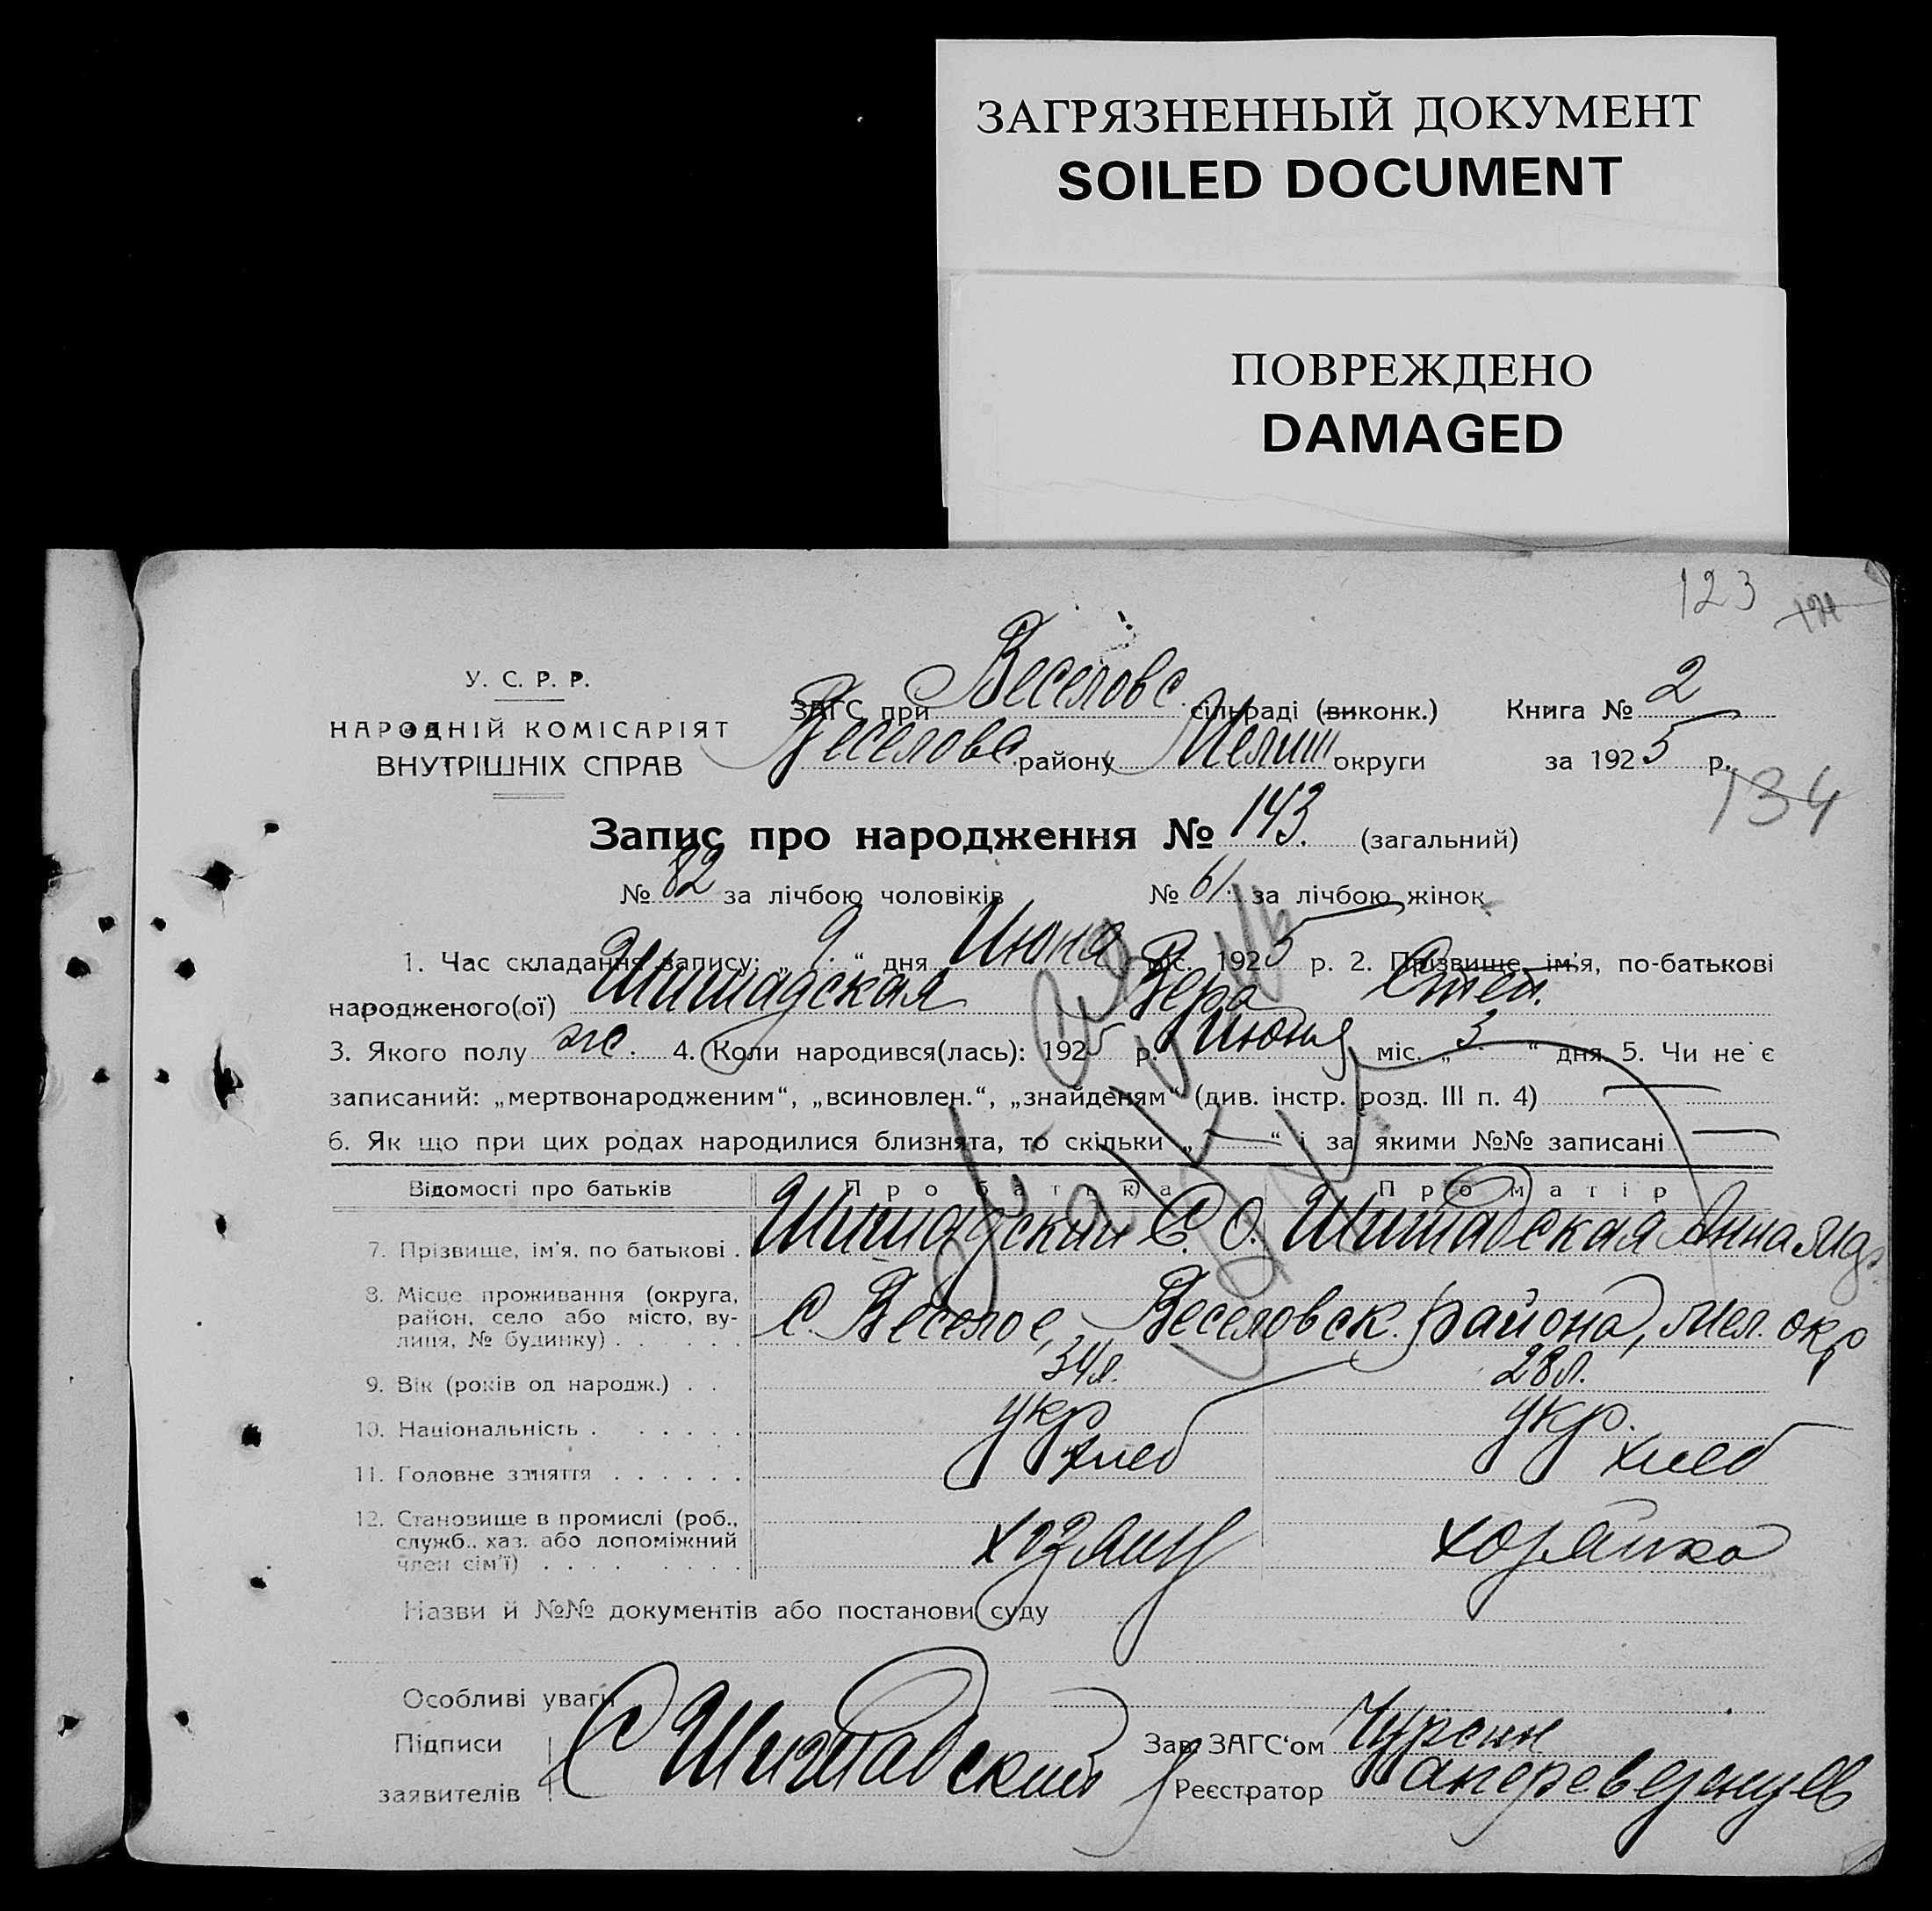 ЗАГРЯЗНЕННЫЙ ДОКУМЕНТ
SOILED DOCUMENT
ПОВРЕЖДЕНО
DAMAGED
123
У. С. Р. Р.
НАРОДНІЙ КОМІСАРІЯТ
ВНУТРІШНІХ СПРАВ
ЗАГС при Веселовс. сільраді (виконк.) Книга № 2
Веселовс. району Мелит округи за 1925 р.
134
Запис про народження № 143. (загальний)
№ 82 за лічбою чоловіків № 61. за лічбою жінок
1. Час складання запису: „9.“ дня Июня міс. 1925 р. 2. Прізвище, ім'я, по-батькові
народженого(ої) Шишадская Вера Степ.
3. Якого полу ж. 4. Коли народився(лась): 1925 р. Июня міс. „3.“ дня 5. Чи не є
записаний: „мертвонародженим“, „всиновлен.“, „знайденям“ (див. інстр. розд. III п. 4)
6. Як що при цих родах народилися близнята, то скільки „ “ і за якими №№ записані
Відомості про батьків Про батька Про матір
7. Прізвище, ім'я, по батькові . Шишадский С. О. Шишадская Анна
8. Місце проживання (округа,
район, село або місто, ву-
лиця, № будинку) . . . . . . С. Веселое, Веселовск. района, Мел. окр
9. Вік (років од народж.) . . 34 л. 28 л.
10. Національність . . . . . . укр укр.
11. Головне заняття . . . . . . хлеб хлеб
12. Становище в промислі (роб.,
служб., хаз. або допоміжний
член сім'ї) . . . . . . . хозяин хозяйка
Назви й №№ документів або постанови суду
Особливі уваги
Підписи
заявителів С Шишадский
Зав ЗАГС'ом Чурсин
Реєстратор